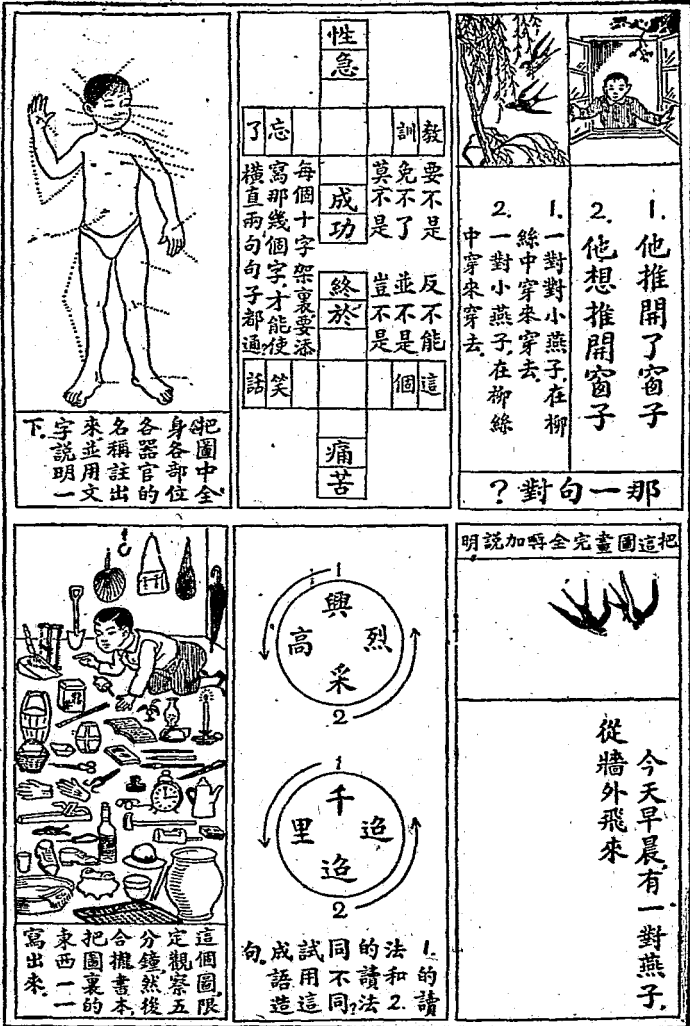 那一句對？
1. 他推開了窗子
2. 他想推開窗子
1. 一對對小燕子，在柳
絲中穿來穿去。
2. 一對小燕子，在柳絲
中穿來穿去。
性急
教訓
忘了
要不是
免不了
莫不是
成功
反不能
並不是
豈不是
終於
這個
笑話
痛苦
每個十字架裏，要添
寫那幾個字，才能使
橫直兩句句子都通？
把圖中全
身各部位
各器官的
名稱註出
來，並用文
字說明一
下。
把這圖畫完全再加說明
今天早晨，有一對燕子，
從牆外飛來
1
興
高
采
烈
2
1
千
里
迢
迢
2
1. 的讀
法和2.
的讀法
同不同？
試用這
成語造
句。
這個圖，限
定觀察五
分鐘，然後
合攏書本，
把圖裏的
東西一一
寫出來。